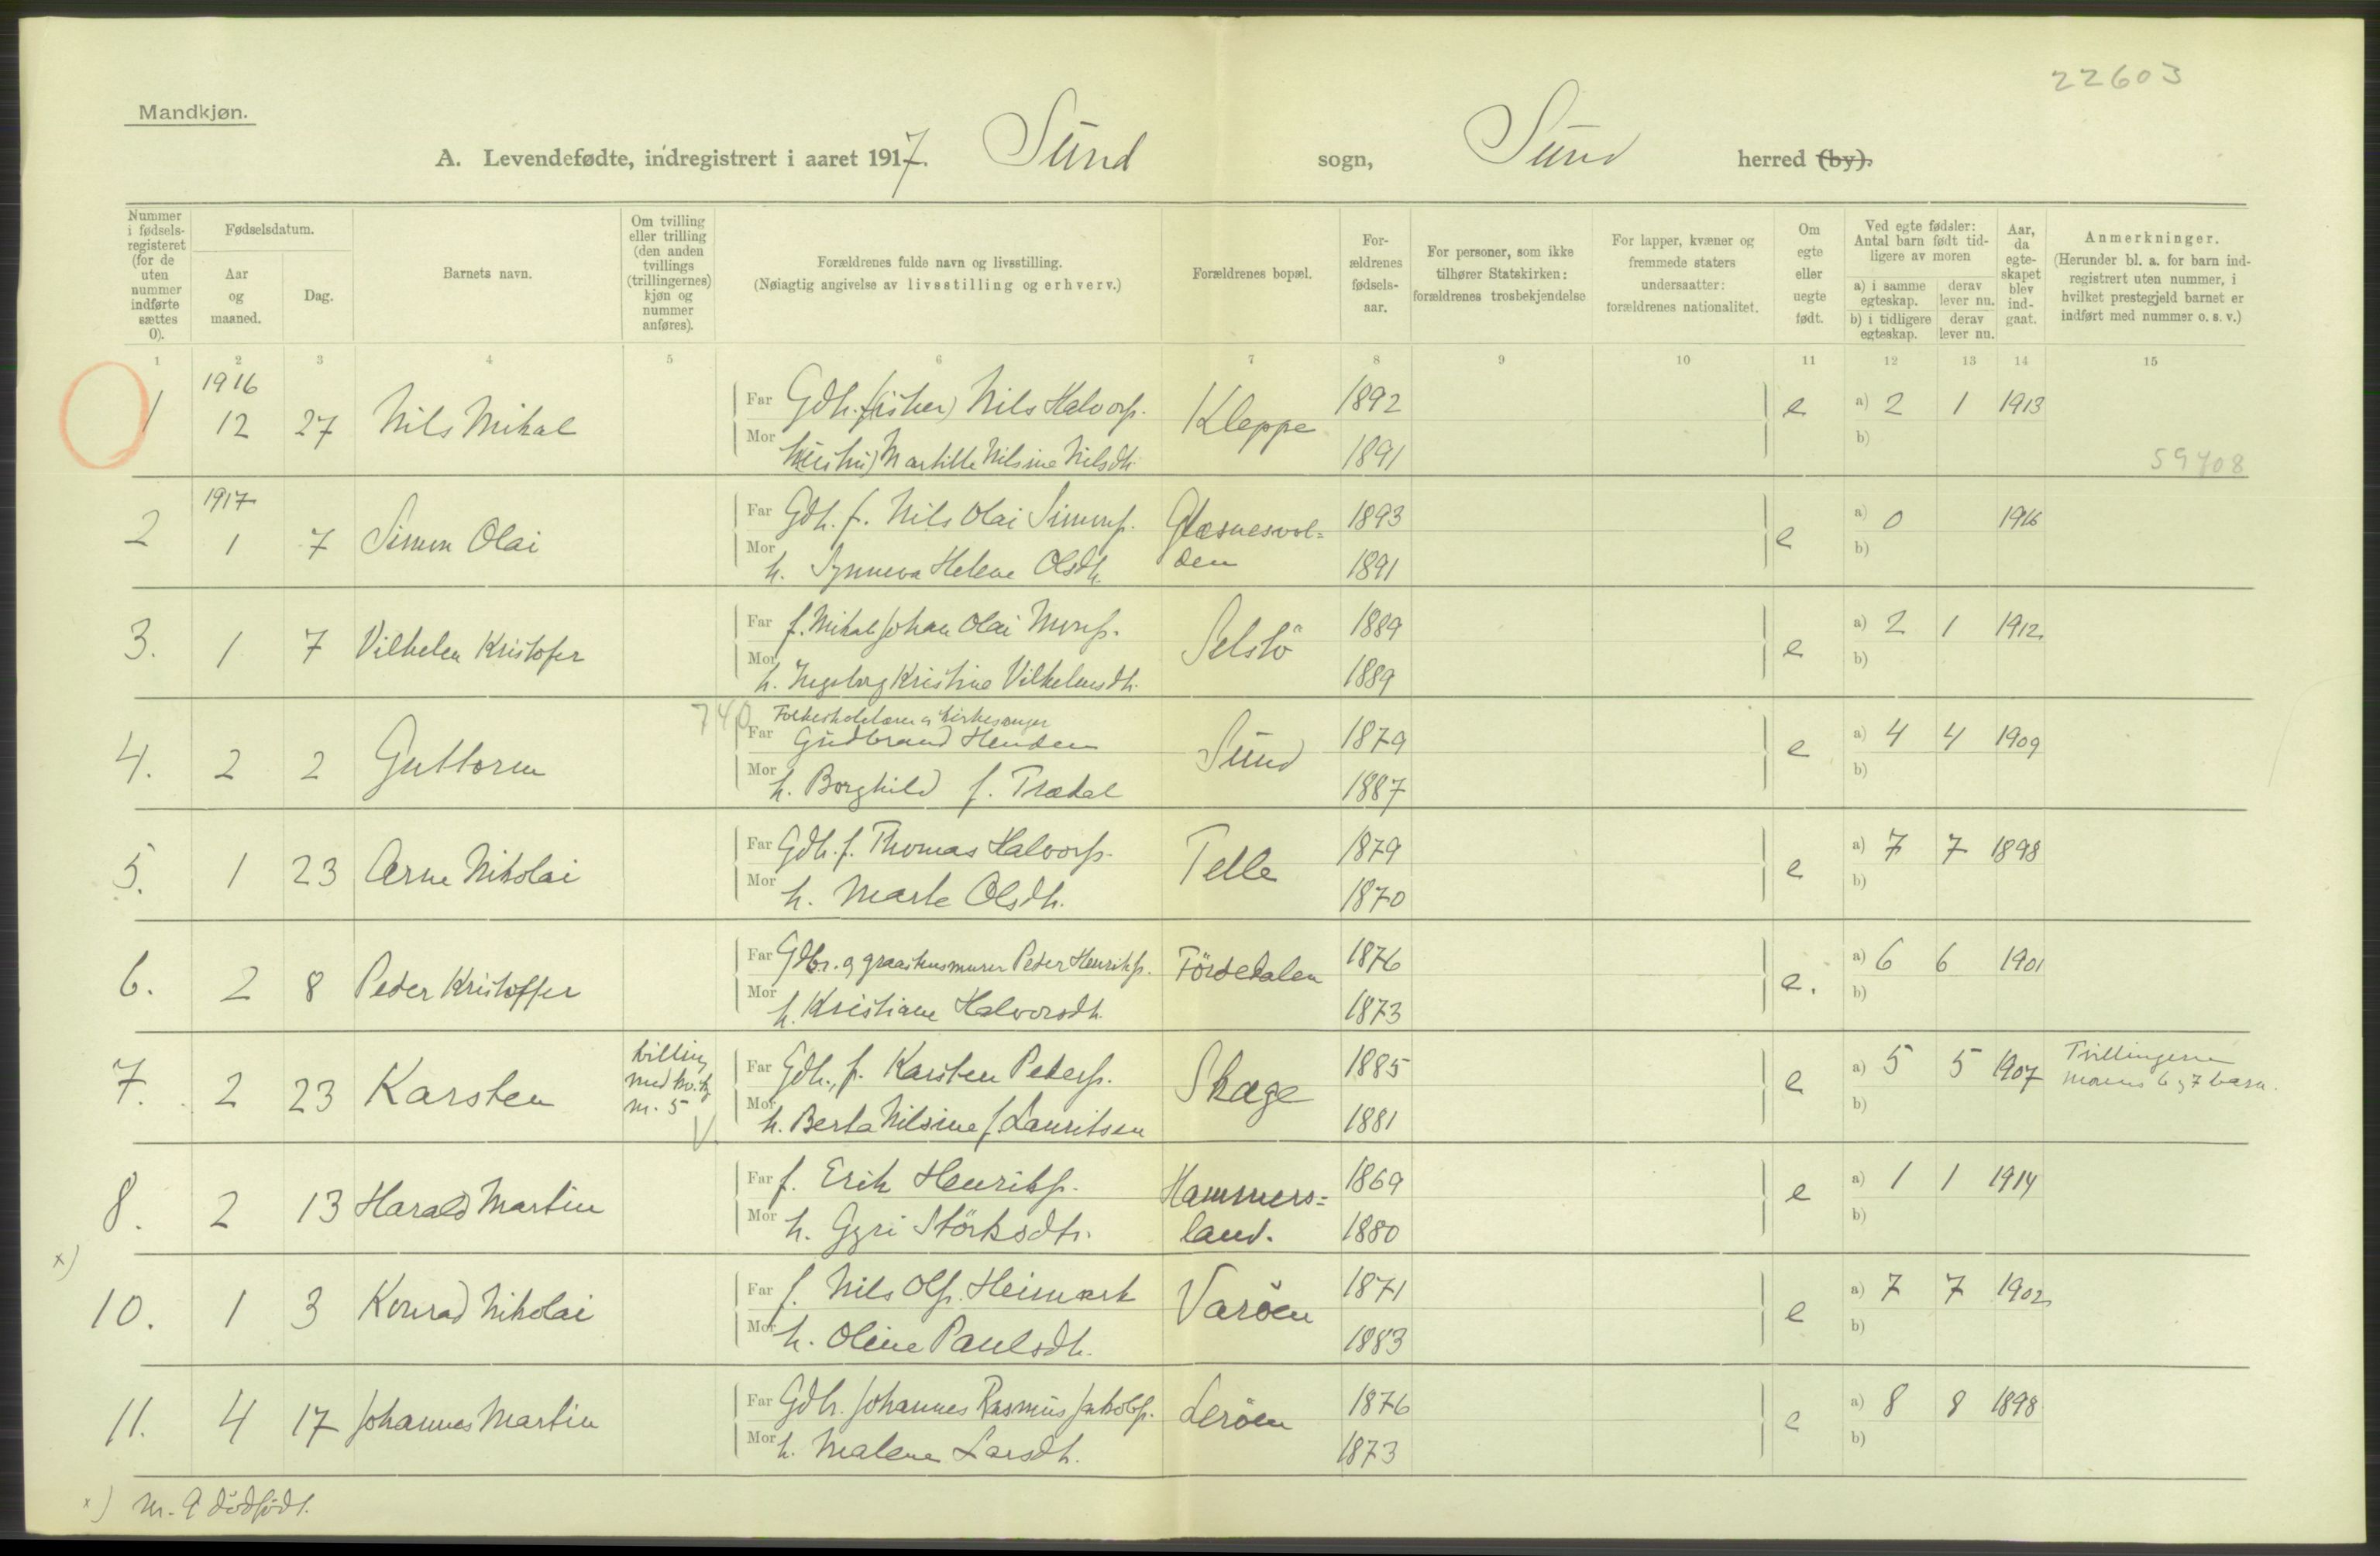 22603
Mandkjøn.
A. Levendefødte, indregistrert i aaret 1917. Sund sogn, Sund herred (by).
Nummer i fødsels-registeret (for de uten nummer indførte sættes 0).
Fødselsdatum.
Aar og maaned.
Dag.
Barnets navn.
Om tvilling eller trilling (den anden tvillings (trillingernes) kjøn og nummer anføres).
Forældrenes fulde navn og livsstilling.
(Nøiagtig angivelse av livsstilling og erhverv.)
Forældrenes bopæl.
For-ældrenes fødsels-aar.
For personer, som ikke tilhører Statskirken: forældrenes trosbekjendelse
For lapper, kvæner og fremmede staters undersaatter: forældrenes nationalitet.
Om egte eller uegte født.
Ved egte fødsler: Antal barn født tid-ligere av moren
a) i samme egteskap. derav lever nu.
b) i tidligere egteskap. derav lever nu.
Aar, da egte-skapet blev ind-gaat.
Anmerkninger.
(Herunder bl. a. for barn ind-registrert uten nummer, i hvilket prestegjeld barnet er indført med nummer o. s. v.)
1 2 3 4 5 6 7 8 9 10 11 12 13 14 15
1916
1 12 27 Nils Mikal Far Gdh. (fisker) Nils Halvors. Kleppe 1892 e a) 2 1 1913
Mor (hustru) Martille Nilsine Nilsdtr. 1891 b) 59708
1917
2 1 7 Simon Olai Far Gdh. f. Nils Olai Simons. Glæsnesvol= 1893 e a) 0 1916
Mor h. Synneva Helene Olsdtr. den 1891 b)
3. 1 7 Vilhelm Kristofer Far f. Mikal Johan Olai Mons. Selstö 1889 e a) 2 1 1912
Mor h. Ingeborg Kristine Vilhelmsdtr. 1889 b)
740 Folkeskolelærer og kirkesanger
4. 2 2 Guttorm Far Gudbrand Henden Sund 1879 e a) 4 4 1909
Mor h. Borghild f. Trædal 1887 b)
5. 1 23 Arne Nikolai Far Gdh. f. Thomas Halvors. Telle 1879 e a) 7 7 1898
Mor h. Marte Olsdtr. 1870 b)
6. 2 8 Peder Kristoffer Far Gdbr. og graastensmurer Peder Henriks. Fördedalen 1876 e. a) 6 6 1901
Mor h. Kristiane Halvorsdtr. 1873 b)
7. 2 23 Karsten tvilling med kv.kj. nr. 5 Far Gdh., f. Karsten Peders. Skage 1885 e a) 5 5 1907 Tvillingerne
Mor h. Berta Nilsine f. Lauritsen 1881 b) morens 6 og 7 barn.
8. 2 13 Harald Martin Far f. Erik Henriks. Hammers= 1869 e a) 1 1 1914
Mor h. Gyri Störksdtr. land. 1880 b)
x)
10. 1 3 Konrad Nikolai Far f. Nils Ols. Heimark Varöen 1871 e a) 7 7 1902
Mor h. Oline Paulsdtr. 1883 b)
11. 4 17 Johannes Martin Far Gdh. Johannes Rasmus Jakobs. Leröen 1876 e a) 8 8 1898
Mor h. Malene Larsdtr. 1873 b)
x) nr. 9 dödfödt.